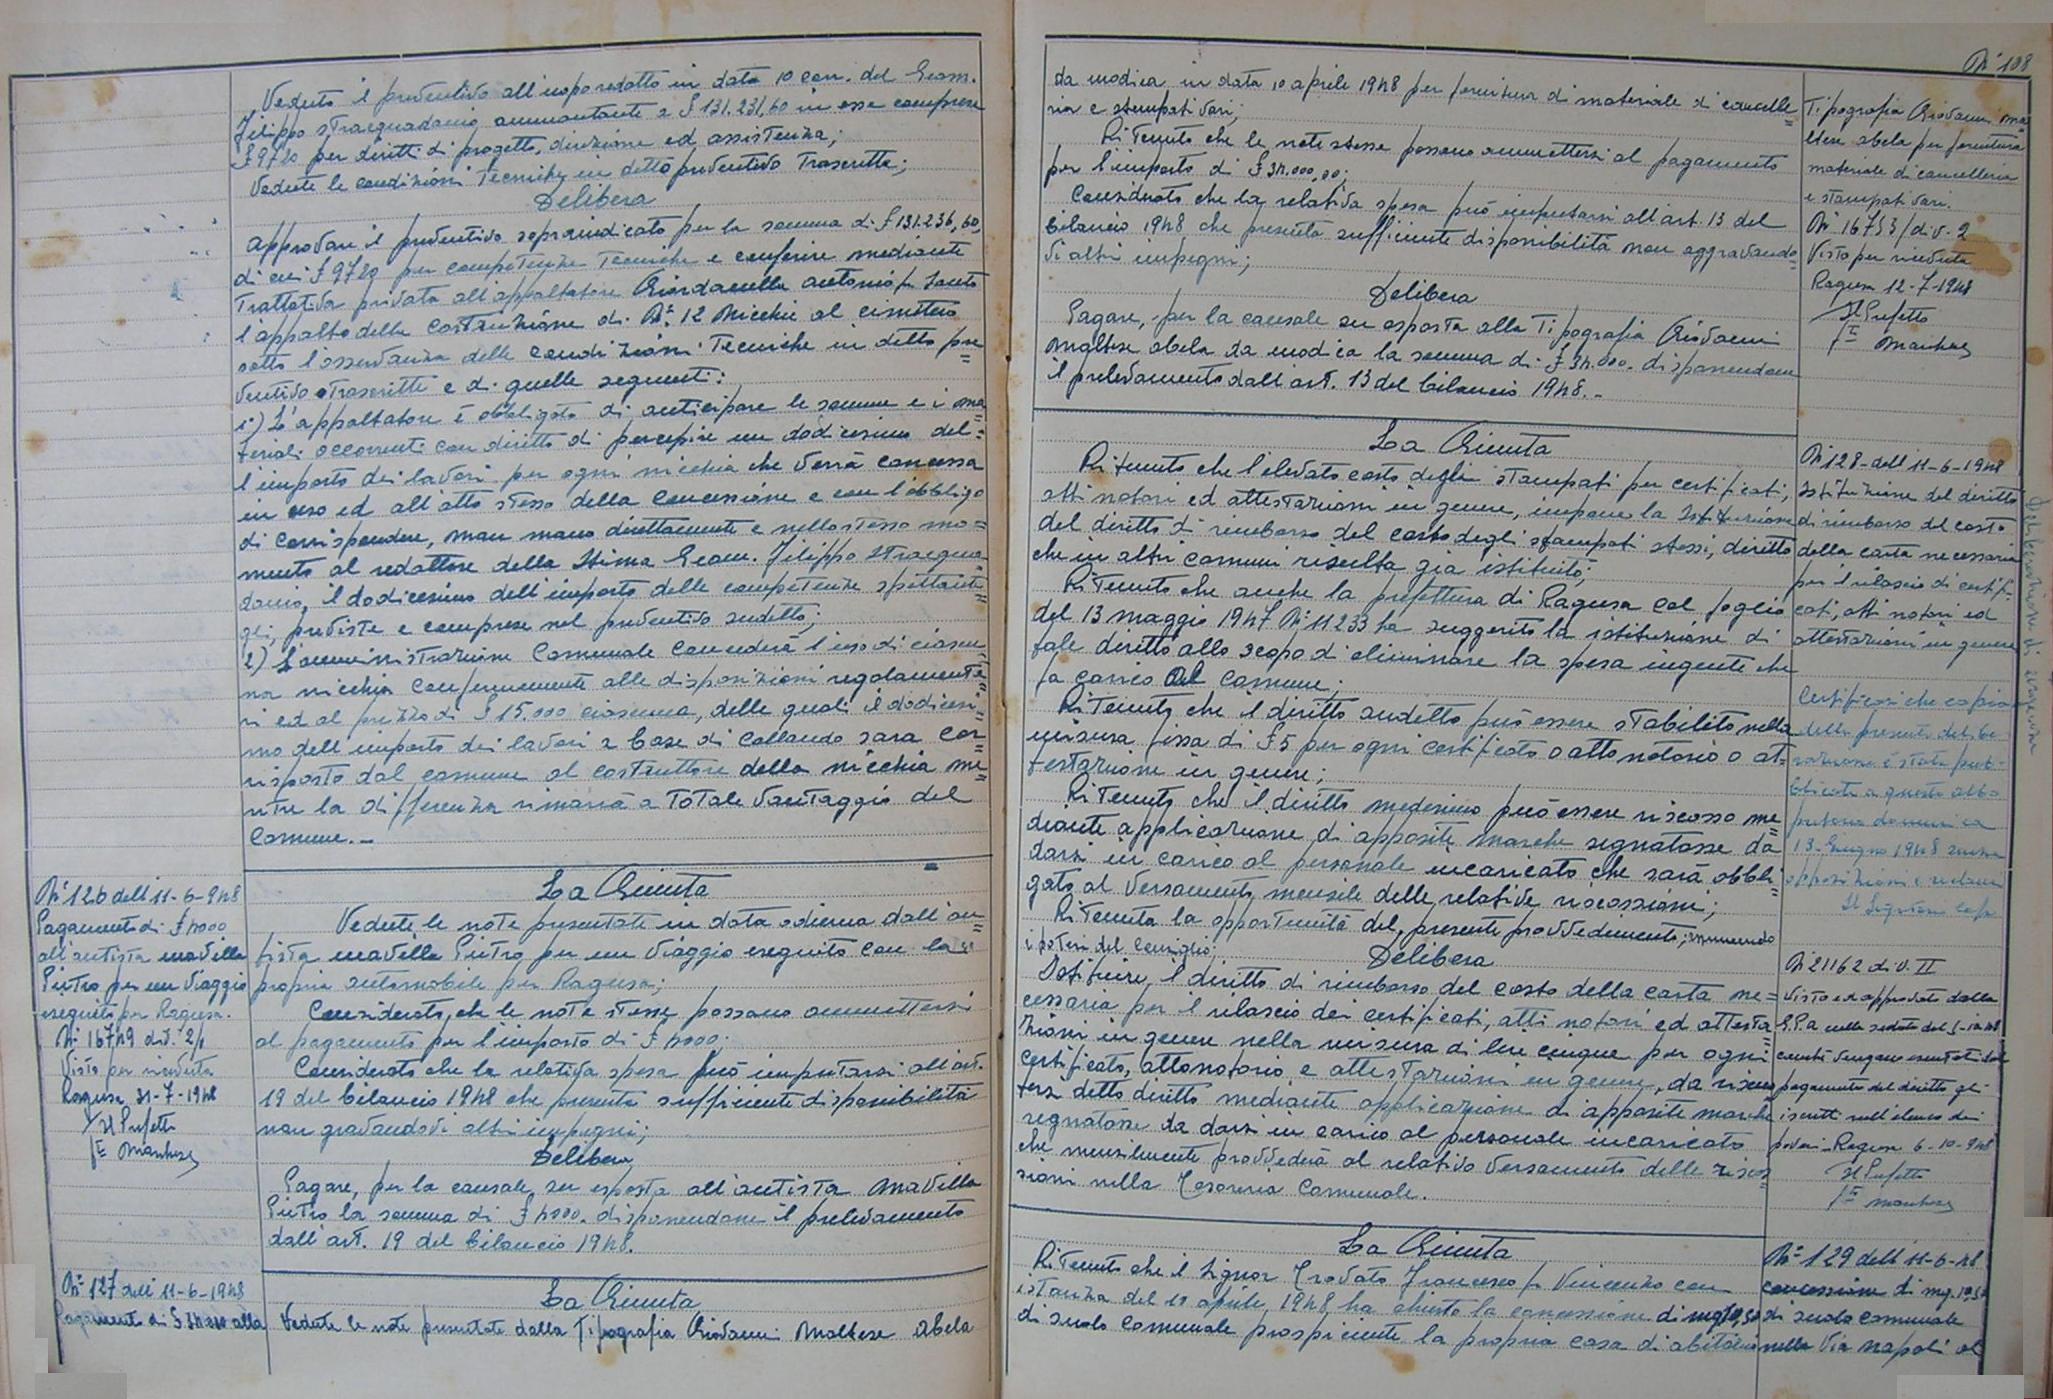 Veduto il preventivo all'uopo redatto in data 10 corr. del Geom.
Filippo Stracquadanio ammontante a £ 131.231,60 in esse comprese
£ 9720 per diritti di progetto, direzione ed assistenza;
Vedute le condizioni tecniche in detto preventivo trascritte;
Delibera
approvare il preventivo sopraindicato per la somma di £ 131.236,60,
di cui £ 9720 per competenze tecniche e conferire mediante
trattativa privata all'appaltatore Giordanella Antonio fu Santo
l'appalto della costruzione di N° 12 Nicchie al cimitero
sotto l'osservanza delle condizioni tecniche in detto pre=
ventivo trascritte e di quelle seguenti:
1°) L'appaltatore è obbligato di anticipare le somme e i ma=
teriali occorrenti con diritto di percepire un dodicesimo del=
l'importo dei lavori per ogni nicchia che verrà concessa
in uso ed all'atto stesso della concessione e con l'obbligo
di corrispondere, man mano direttamente e nello stesso mo=
mento al redattore della stima Geom. Filippo Stracqua=
danio, il dodicesimo dell'importo delle competenze spettanti=
gli, previste e comprese nel preventivo sudetto;
2) L'amministrazione Comunale concederà l'uso di ciascu=
na nicchia conformemente alle disposizioni regolamenta=
ri ed al prezzo di £ 15.000 ciascuna, delle quali il dodicesi=
mo dell'importo dei lavori a base di collaudo sarà cor=
risposto dal comune al costruttore della nicchia me=
ntre la differenza rimarrà a totale vantaggio del
Comune.-
N° 126 dell'11-6-948
Pagamento di £ 4000
all'autista Mavilla
Pietro per un viaggio
eseguito per Ragusa.
N° 16749 div. 2/1
Visto per ricevuta
Ragusa 31-7-1948
Il Prefetto
La Giunta
Vedute le note presentate in data odierna dall'au=
tista Mavilla Pietro per un viaggio eseguito con la
propria automobile per Ragusa;
Considerato che le note stesse possano ammettersi
al pagamento per l'importo di £ 4000;
Considerato che la relativa spesa può imputarsi all'art.
19 del bilancio 1948 che presenta sufficiente disponibilità
non gravandovi altri impegni;
Delibera
Pagare, per la causale su esposta all'autista Mavilla
Pietro la somma di £ 4000. disponendone il prelevamento
dall'art. 19 del bilancio 1948.
N° 127 dell'11-6-1948
Pagamento di £ 34.000 alla
La Giunta
Vedute le note presentate dalla Tipografia Giovanni Maltese Abela
N° 108
da Modica in data 10 aprile 1948 per fornitura di materiale di cancelle=
ria e stampati vari;
Ritenuto che le note stesse possano ammettersi al pagamento
per l'importo di £ 34.000,00;
Considerato che la relativa spesa può imputarsi all'art. 13 del
bilancio 1948 che presenta sufficiente disponibilità non aggravando=
vi altri impegni;
Delibera
Pagare, per la causale su esposta alla Tipografia Giovanni
Maltese Abela da Modica la somma di £ 34.000. disponendone
il prelevamento dall'art. 13 del bilancio 1948.-
Tipografia Giovanni Ma=
ltese Abela per fornitura
materiale di cancelleria
e stampati vari.
N° 16753/div. 2
Visto per ricevuta
Ragusa 12-7-1948
Il Prefetto
La Giunta
Ritenuto che l'elevato costo degli stampati per certificati,
atti notori ed attestazioni in genere, impone la istituzione
del diritto di rimborso del costo degli stampati stessi, diritto
che in altri comuni risulta già istituito;
Ritenuto che anche la prefettura di Ragusa col foglio
del 13 maggio 1947 N° 11233 ha suggerito la istituzione di
tale diritto allo scopo di eliminare la spesa ingente che
fa carico al comune;
Ritenuto che il diritto sudetto può essere stabilito nella
misura fissa di £ 5 per ogni certificato o atto notorio o at=
testazione in genere;
Ritenuto che il diritto medesimo può essere riscosso me=
diante applicazione di apposite marche segnatasse da
darsi in carico al personale incaricato che sarà obbli=
gato al versamento mensile delle relative riscossioni;
Ritenuta la opportunità del presente provvedimento; assumendo
i poteri del consiglio;
Delibera
Istituire il diritto di rimborso del costo della carta ne=
cessaria per il rilascio dei certificati, atti notori ed attesta=
zioni in genere nella misura di lire cinque per ogni
certificato, atto notorio e attestazioni in genere, da riscuo=
tersi detto diritto mediante applicazione di apposite marche
segnatasse da darsi in carico al personale incaricato
che mensilmente provvederà al relativo versamento delle riscos=
sioni nella Tesoreria Comunale.
N° 128 dell'11-6-1948
Istituzione del diritto
di rimborso del costo
della carta necessaria
per il rilascio di certifi=
cati, atti notori ed
attestazioni in genere
Certificasi che copia
della presente delibe=
razione è stata pub=
blicata a questo albo
pretorio domenica
13 Giugno 1948 senza
opposizioni e reclami
Il Segretario Capo
N° 21162 div. II
Visto ed approvato dalla
G.P.A. nella seduta del
pagamento del diritto gli
iscritti nell'elenco dei
poveri - Ragusa 6-10-948
Il Prefetto
La Giunta
Ritenuto che il Signor Trovato Francesco fu Vincenzo con
istanza del 10 aprile 1948 ha chiesto la concessione di mq 10,50
di suolo comunale prospiciente la propria casa di abitazio
N° 129 dell'11-6-48
concessione di mq. 10,50
di suolo comunale
nella Via Napoli al